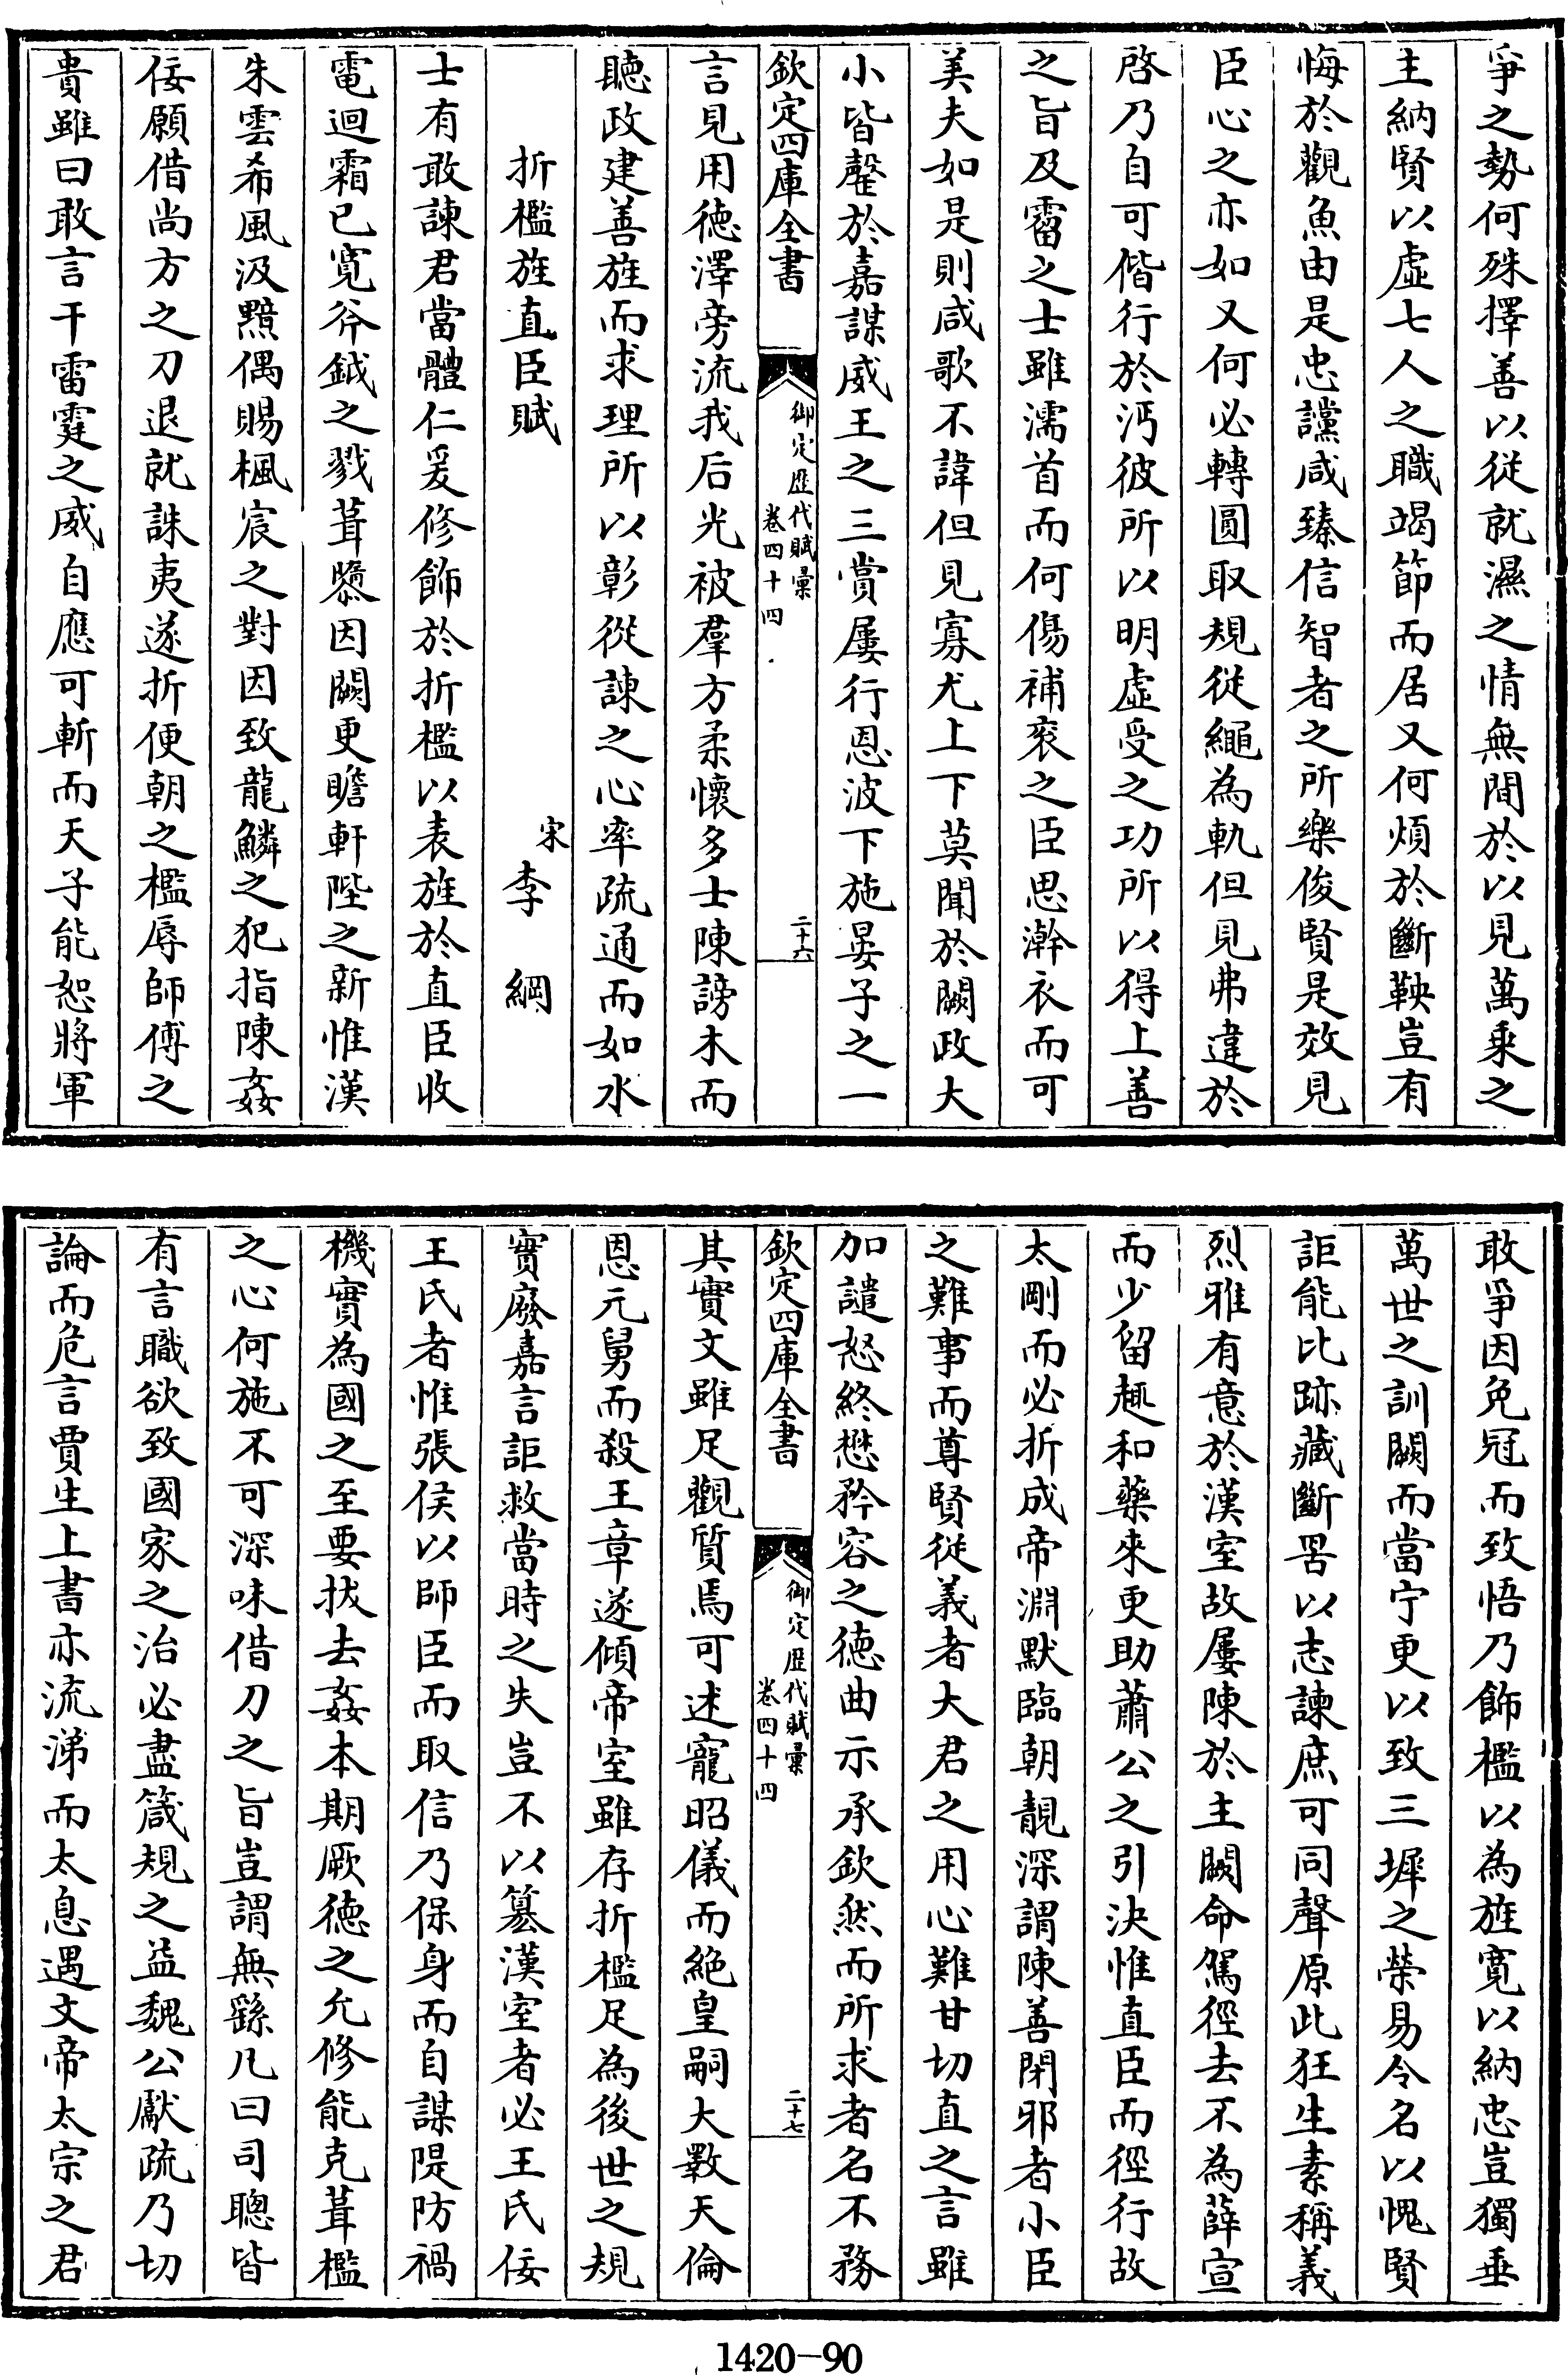 爭之勢何殊擇善以從就濕之情無間於以見萬乘之
主納賢以虛七人之職竭節而居又何煩於斷鞅豈有
悔於觀魚由是忠讜咸臻信智者之所樂俊賢是效見
臣心之亦如又何必轉圓取規從繩為軌但見弗違於
啓乃自可偕行於沔彼所以明虛受之功所以得上善
之旨及霤之士雖濡首而何傷補衮之臣思瀚衣而可
美夫如是則咸歌不諱但見寡尤上下莫聞於闕政大
小皆罄於嘉謀威王之三賞屢行恩波下施晏子之一
欽定四庫全書
御定歴代賦彙
卷四十四
二十六
言見用徳澤旁流我后光被羣方柔懷多士陳謗木而
聽政建善旌而求理所以彰從諫之心率疏通而如水
折檻旌直臣賦
宋李綱
士有敢諫君當體仁爰修飾於折檻以表旌於直臣收
電迴霜已寛斧鉞之戮葺隳因闕更瞻軒陛之新惟漢
朱雲希風汲黯偶賜楓宸之對因致龍鱗之犯指陳姦
佞願借尚方之刀退就誅夷遂折便朝之檻辱師傅之
貴雖曰敢言干雷霆之威自應可斬而天子能恕將軍
敢爭因免冠而致悟乃飾檻以為旌寛以納忠豈獨垂
萬世之訓闕而當宁更以致三墀之榮易令名以愧賢
詎能比跡藏斷罟以志諫庶可同聲原此狂生素稱義
烈雅有意於漢室故屢陳於主闕命駕徑去不為薛宣
而少留趣和藥來更助蕭公之引決惟直臣而徑行故
太剛而必折成帝淵默臨朝靚深謂陳善閉邪者小臣
之難事而尊賢從義者大君之用心難甘切直之言雖
加譴怒終懋矜容之徳曲示承欽然而所求者名不務
欽定四庫全書
御定歴代賦彙
卷四十四
二十七
其實文雖足觀質焉可述寵昭儀而絶皇嗣大斁天倫
恩元舅而殺王章遂傾帝室雖存折檻足為後世之規
實廢嘉言詎救當時之失豈不以簒漢室者必王氏佞
王氏者惟張侯以師臣而取信乃保身而自謀隄防禍
機實為國之至要拔去姦本期厥徳之允修能克葺檻
之心何施不可深味借刀之旨豈謂無繇凡曰司聰皆
有言職欲致國家之治必盡箴規之益魏公獻疏乃切
論而危言賈生上書亦流涕而太息遇文帝太宗之君
1420-90